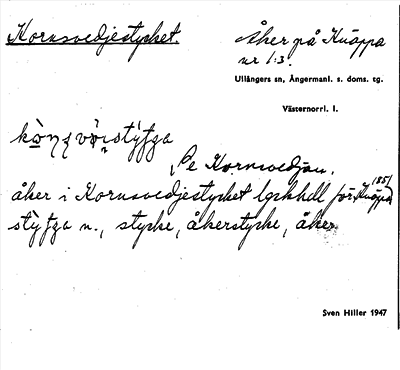 Kornsvedjestycket.
Åker på Knäppa
nr 1:3.
Ullångers sn, Ångermanl. s. doms. tg.
Västernorrl. l.
Se Kornsvedjan.
åker i Kornsvedjestycket lgskhdl för Knäppa 1851
n., stycke, åkerstycke, åker
Sven Hiller 1947